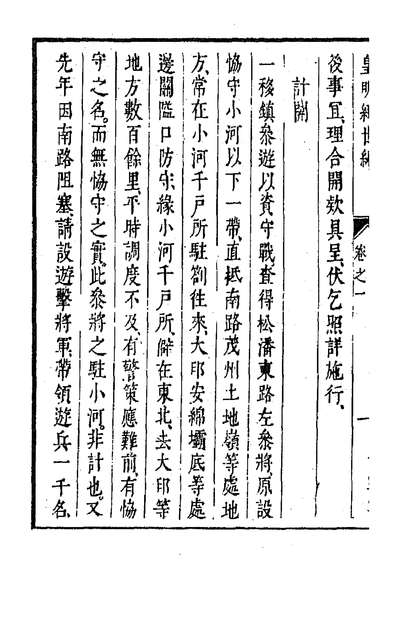 皇明經世編
卷之一
後事宜、理合開款具呈、伏乞照詳施行、
計開
一移鎮叅遊以資守戰、查得松潘東路左叅將、原設
協守小河以下一帶、直抵南路茂州土地嶺等處地
方、常在小河千戶所駐劄往來、大印安綿壩底等處
邊關隘口防守、緣小河千戶所、僻在東北、去大印等
地方數百餘里、平時調度不及、有警策應難前、有協
守之名。而無協守之實。此叅將之駐小河。非計也。又
先年因南路阻塞、請設遊擊將軍、帶領遊兵一千名、